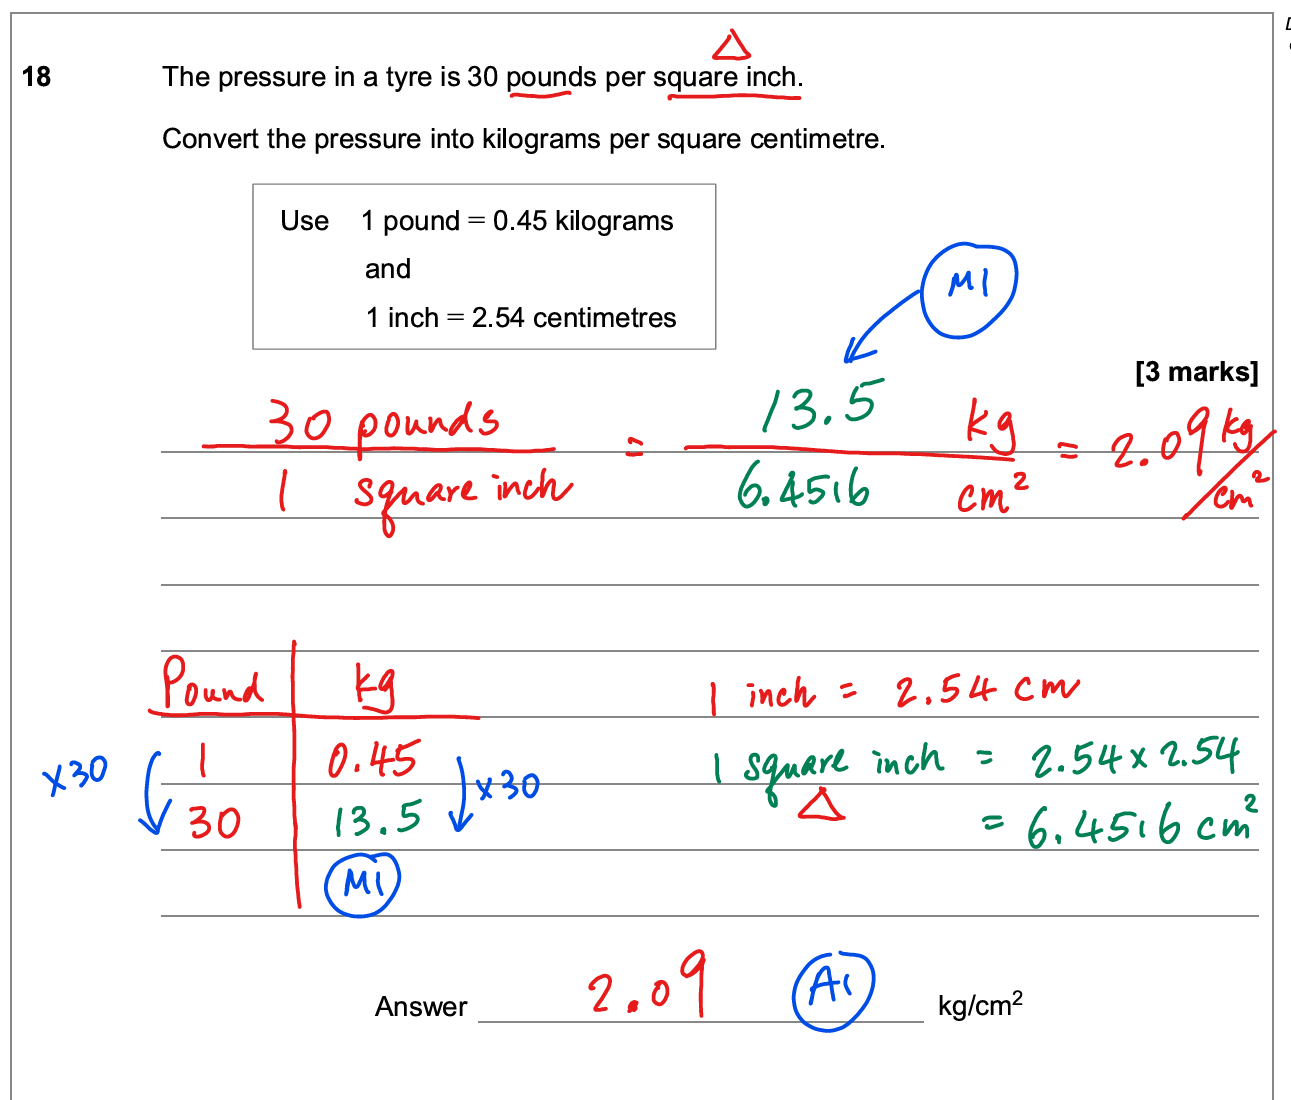 18 The pressure in a tyre is 30 pounds per square inch.
Convert the pressure into kilograms per square centimetre.
Use 1 pound = 0.45 kilograms
and
1 inch = 2.54 centimetres
M1
[3 marks]
30 pounds / 1 square inch = 13.5 kg / 6.4516 cm² = 2.09 kg/cm²
Pound kg
1 0.45
×30 ×30
30 13.5
M1
1 inch = 2.54 cm
1 square inch = 2.54 × 2.54
= 6.4516 cm²
Answer 2.09 A1 kg/cm²